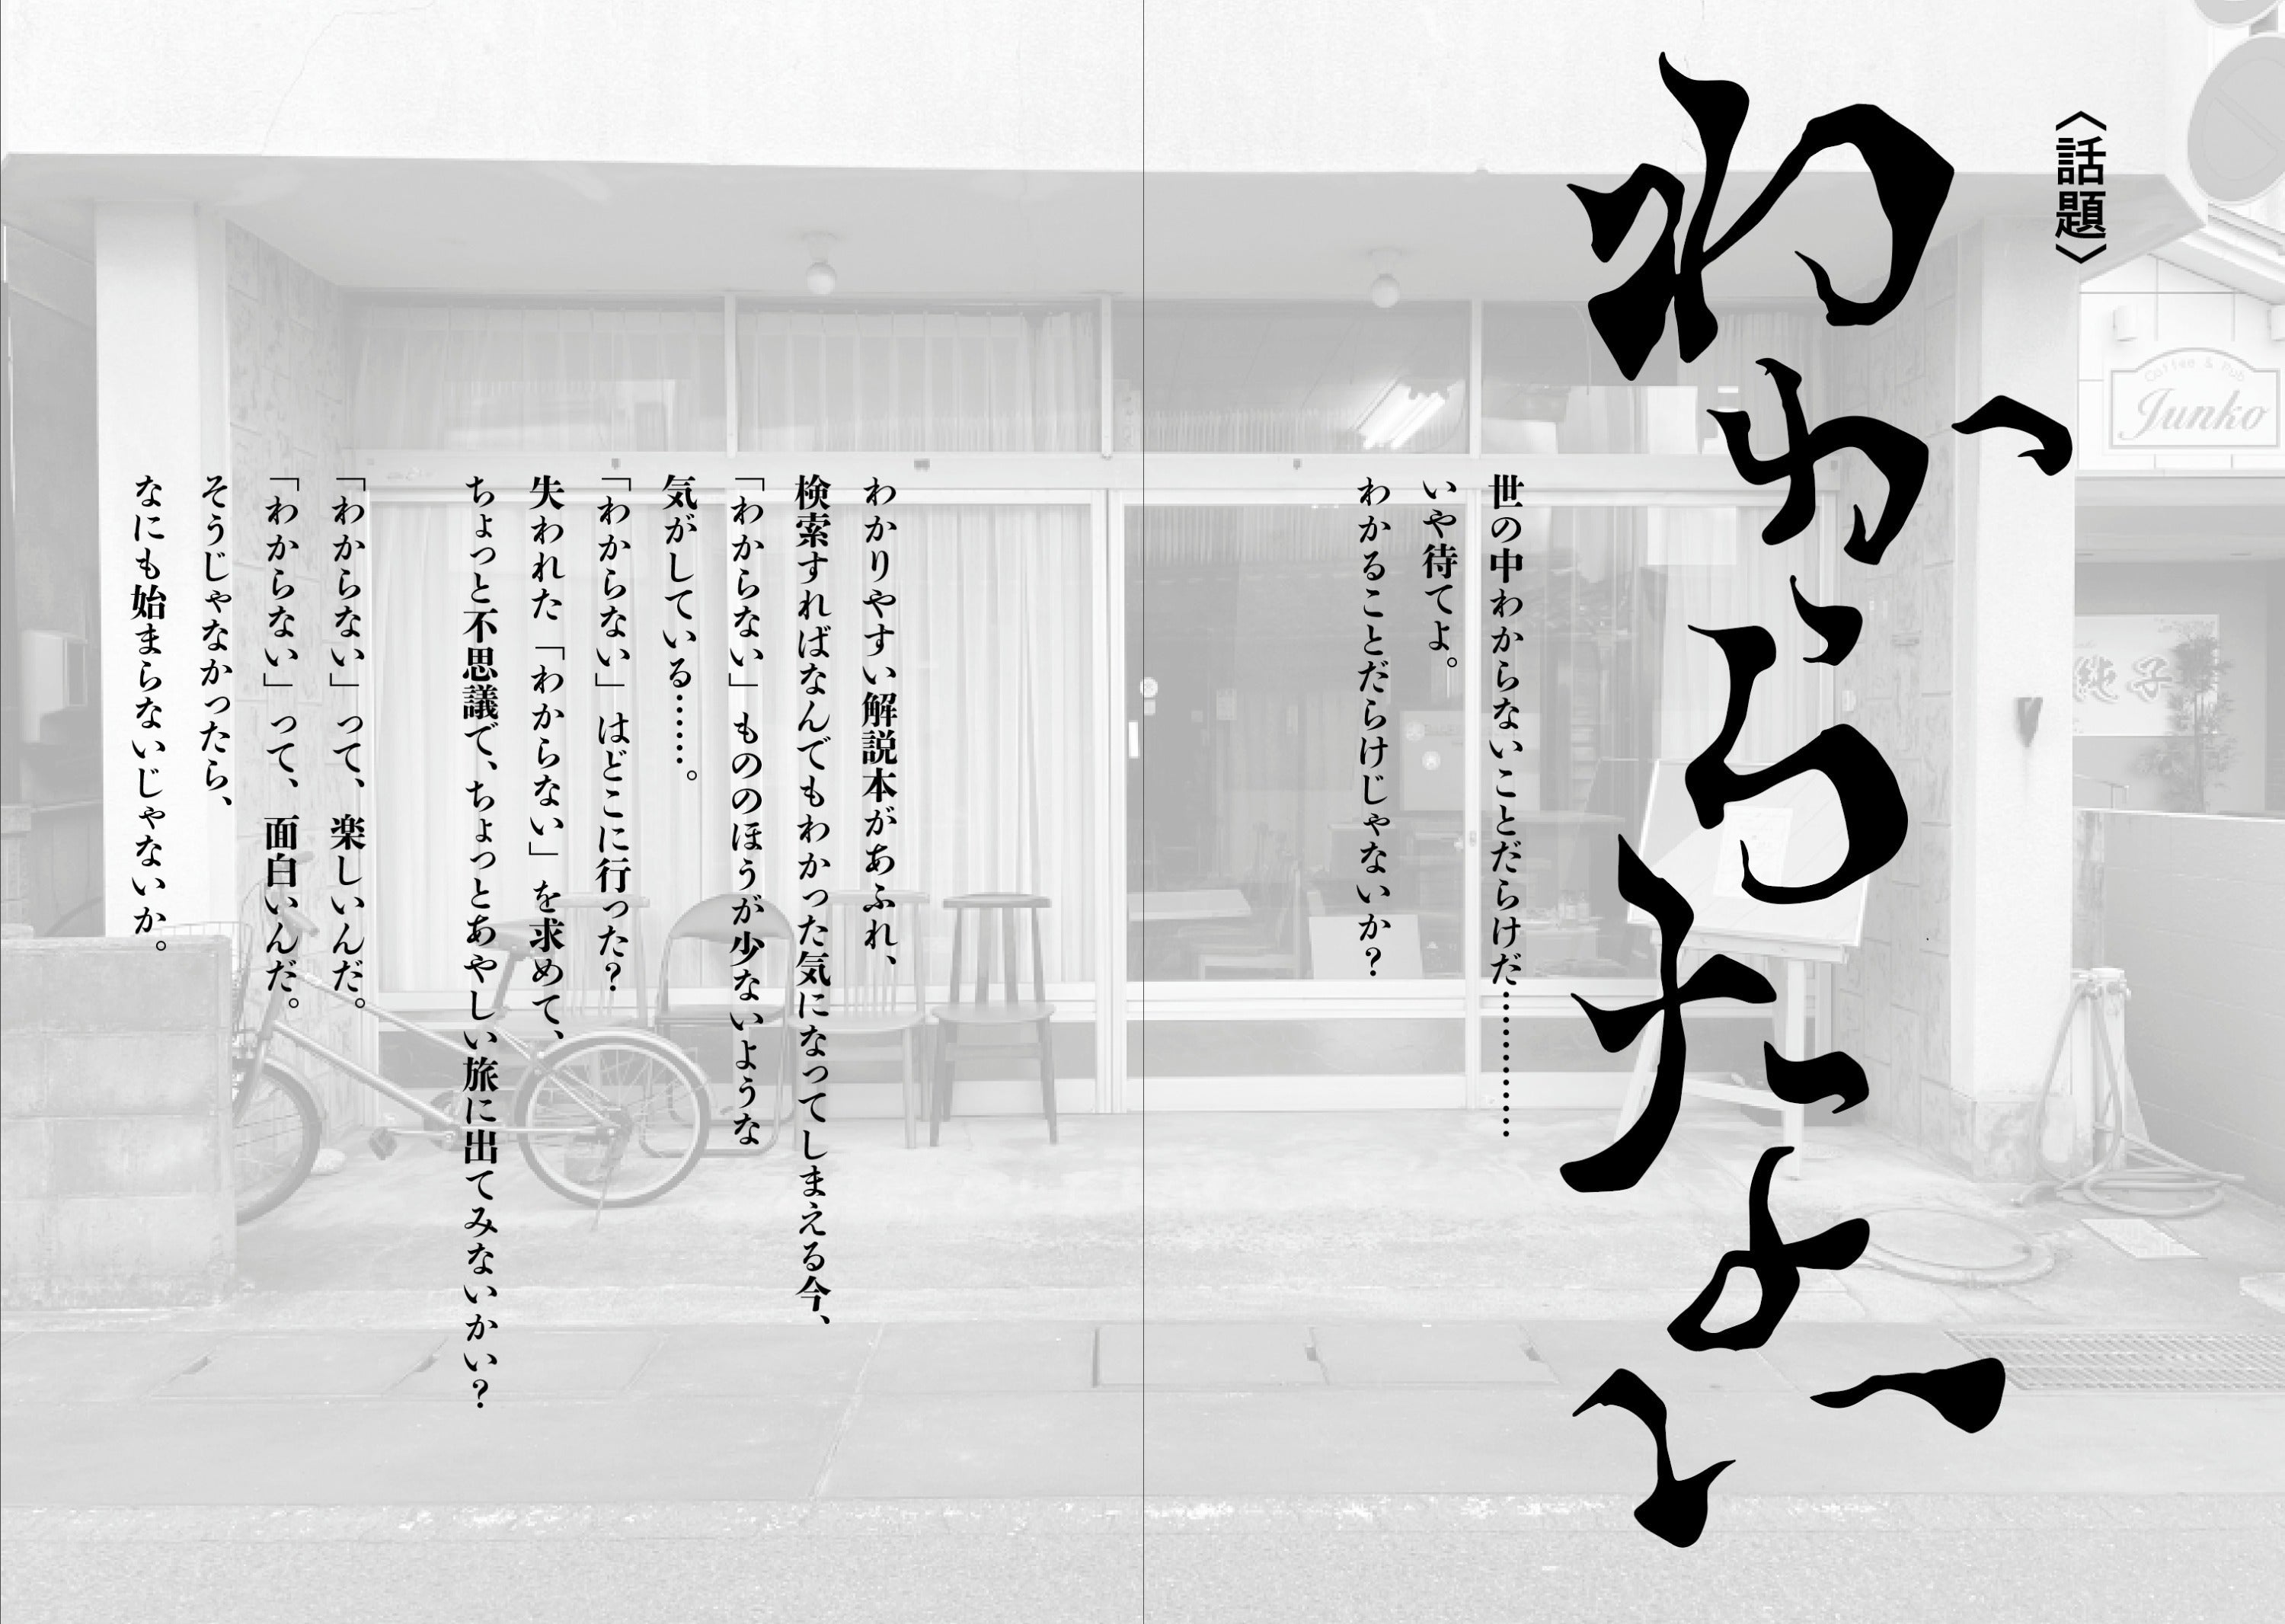 〈話題〉
わからない
世の中わからないことだらけだ…………
いや待てよ。
わかることだらけじゃないか？
わかりやすい解説本があふれ、
検索すればなんでもわかった気になってしまえる今、
「わからない」もののほうが少ないような
気がしている……。
「わからない」はどこに行った？
失われた「わからない」を求めて、
ちょっと不思議で、ちょっとあやしい旅に出てみないかい？
「わからない」って、楽しいんだ。
「わからない」って、面白いんだ。
そうじゃなかったら、
なにも始まらないじゃないか。
Coffee & Pub
Junko
純子